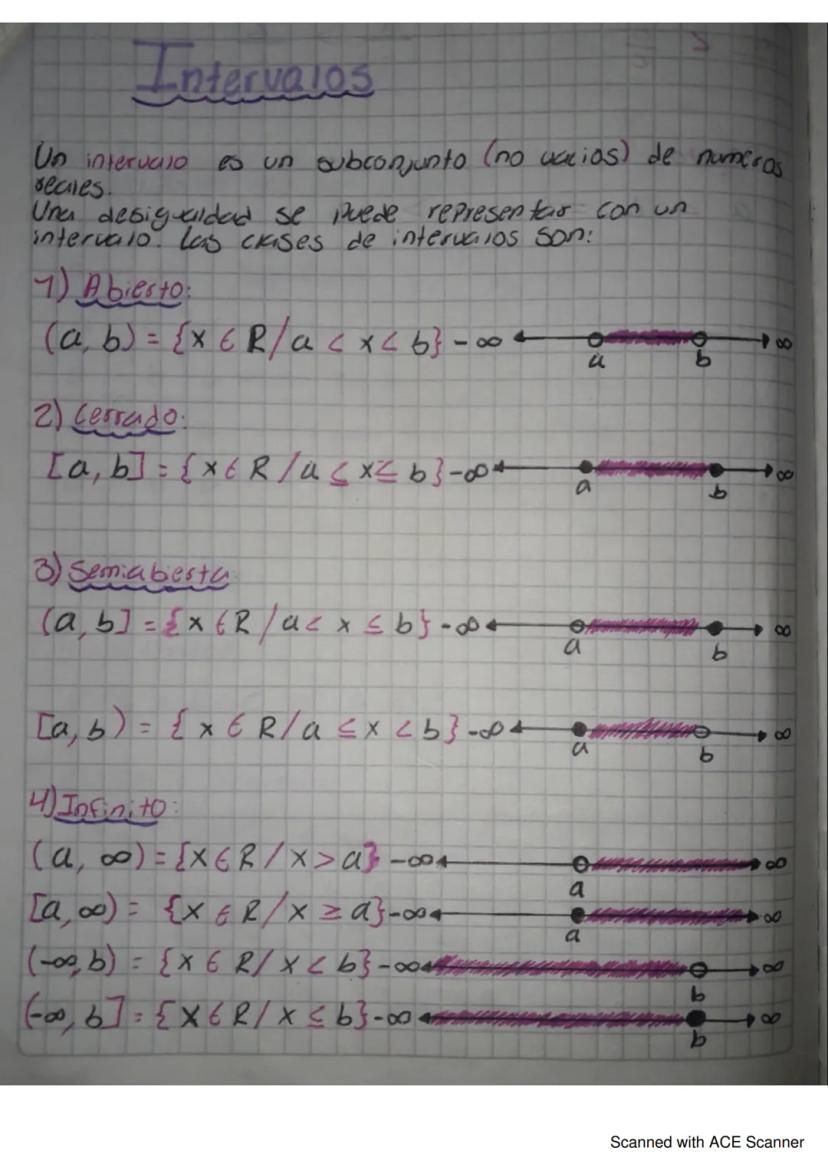 Intervalos
Un intervalo es un subconjunto (no vacios) de numeros
reales.
Una desigualdad se puede representar con un
intervalo. Las clases de intervalos son:
1) Abierto:
(a, b) = {x ∈ R/a < x < b} -∞ ∞
a b
2) Cerrado:
[a, b] = {x ∈ R/a ≤ x ≤ b} -∞ ∞
a b
3) Semiabierta
(a, b] = {x ∈ R/a < x ≤ b} -∞ ∞
a b
[a, b) = {x ∈ R/a ≤ x < b} -∞ ∞
a b
4) Infinito:
(a, ∞) = {x ∈ R/x > a} -∞ ∞
a
[a, ∞) = {x ∈ R/x ≥ a} -∞ ∞
a
(-∞, b) = {x ∈ R/x < b} -∞ ∞
b
(-∞, b] = {x ∈ R/x ≤ b} -∞ ∞
b
Scanned with ACE Scanner